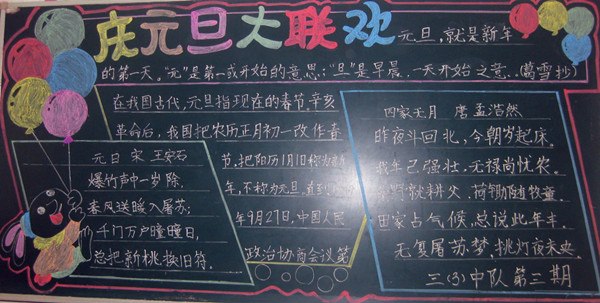 庆元旦大联欢
元旦，就是新年
的第一天。“元”是第一或开始的意思；“旦”是早晨、一天开始之意。(葛雪抄)
在我国古代，元旦指现在的春节。辛亥
革命后，我国把农历正月初一改作春
节，把阳历1月1日称为新
年，不称为元旦。直到
年9月27日，中国人民
政治协商会议第
元日 宋 王安石
爆竹声中一岁除，
春风送暖入屠苏；
千门万户曈曈日，
总把新桃换旧符。
四家元月 唐 孟浩然
昨夜斗回北，今朝岁起床。
我年已强壮，无禄尚忧农。
野就耕父，荷锄随牧童。
田家占气候，总说此年丰。
无复屠苏梦，挑灯夜未央。
三(3)中队第三期